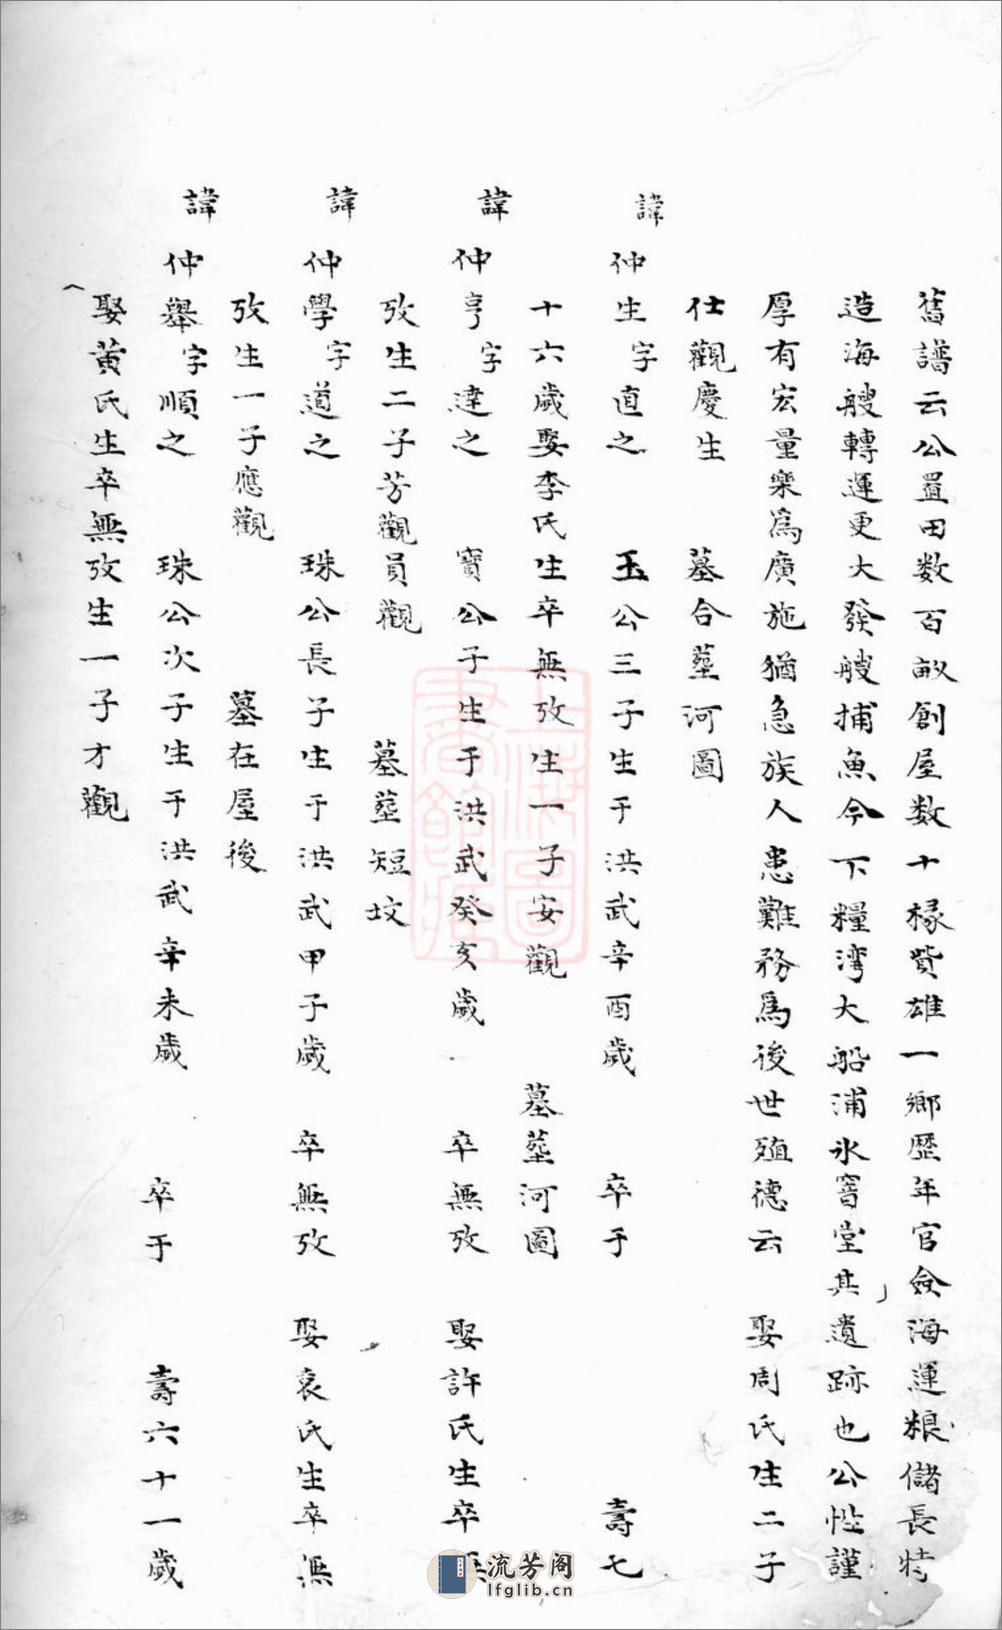 舊譜云公置田数百畝創屋数十椽貲雄一鄉歷年官僉海運粮儲長特
造海艘轉運更大發艘捕魚今下糧湾大船浦氷窖堂其遺跡也公性謹
厚有宏量樂為廣施猶急族人患難務爲後世殖德云 娶周氏生二子
仕觀慶生 墓合塟河圖
諱仲生字直之 玉公三子生于洪武辛酉歲 卒于 壽七
十六歲娶李氏生卒無攷生一子安觀 墓塟河圖
諱仲亨字達之 寶公子生于洪武癸亥歲 卒無攷 娶許氏生卒無
攷生二子芳觀員觀 墓塟短坟
諱仲學字道之 珠公長子生于洪武甲子歲 卒無攷 娶袁氏生卒無
攷生一子應觀 墓在屋後
諱仲舉字順之 珠公次子生于洪武辛未歲 卒于 壽六十一歲
娶黄氏生卒無攷生一子才觀
上海圖書館藏
流芳阁
lfglib.cn